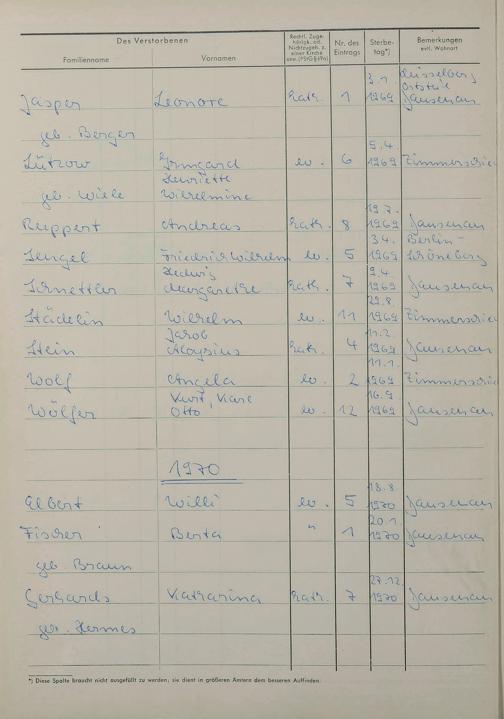 Des Verstorbenen
Familienname Vornamen
Rechtl. Zuge-
hörigk. od.
Nichtzugeh. z.
einer Kirche
Nr. des
Eintrags
Sterbe-
tag*)
Bemerkungen
evtl. Wohnort
3.1. Ortsteil
Jasper Leonore kath. 1 1969
geb. Berger
5.4.
Lützow Irmgard ev. 6 1969
Henriette
geb. Wiele Wilhelmine
19.7.
Ruppert Andreas kath. 8 1969
3.4. Berlin-
Friedrich Wilhelm ev. 5 1969 Schöneberg
Hedwig 9.4.
Margarethe kath. 7 1969
29.8.
Städelin Wilhelm ev. 11 1969
Jakob 11.2.
Stein Aloysius kath. 4 1969
11.1.
Wolf Angela ev. 2 1969
Kurt, Karl 16.9.
Wölfer Otto ev. 12 1969
1970
18.8.
Elbert Willi ev. 5 1970
20.1.
Fischer Berta " 1 1970
geb Braun
27.12.
Gerhards Katharina kath. 7 1970
geb. Hermes
*) Diese Spalte braucht nicht ausgefüllt zu werden; sie dient in größeren Ämtern dem besseren Auffinden.